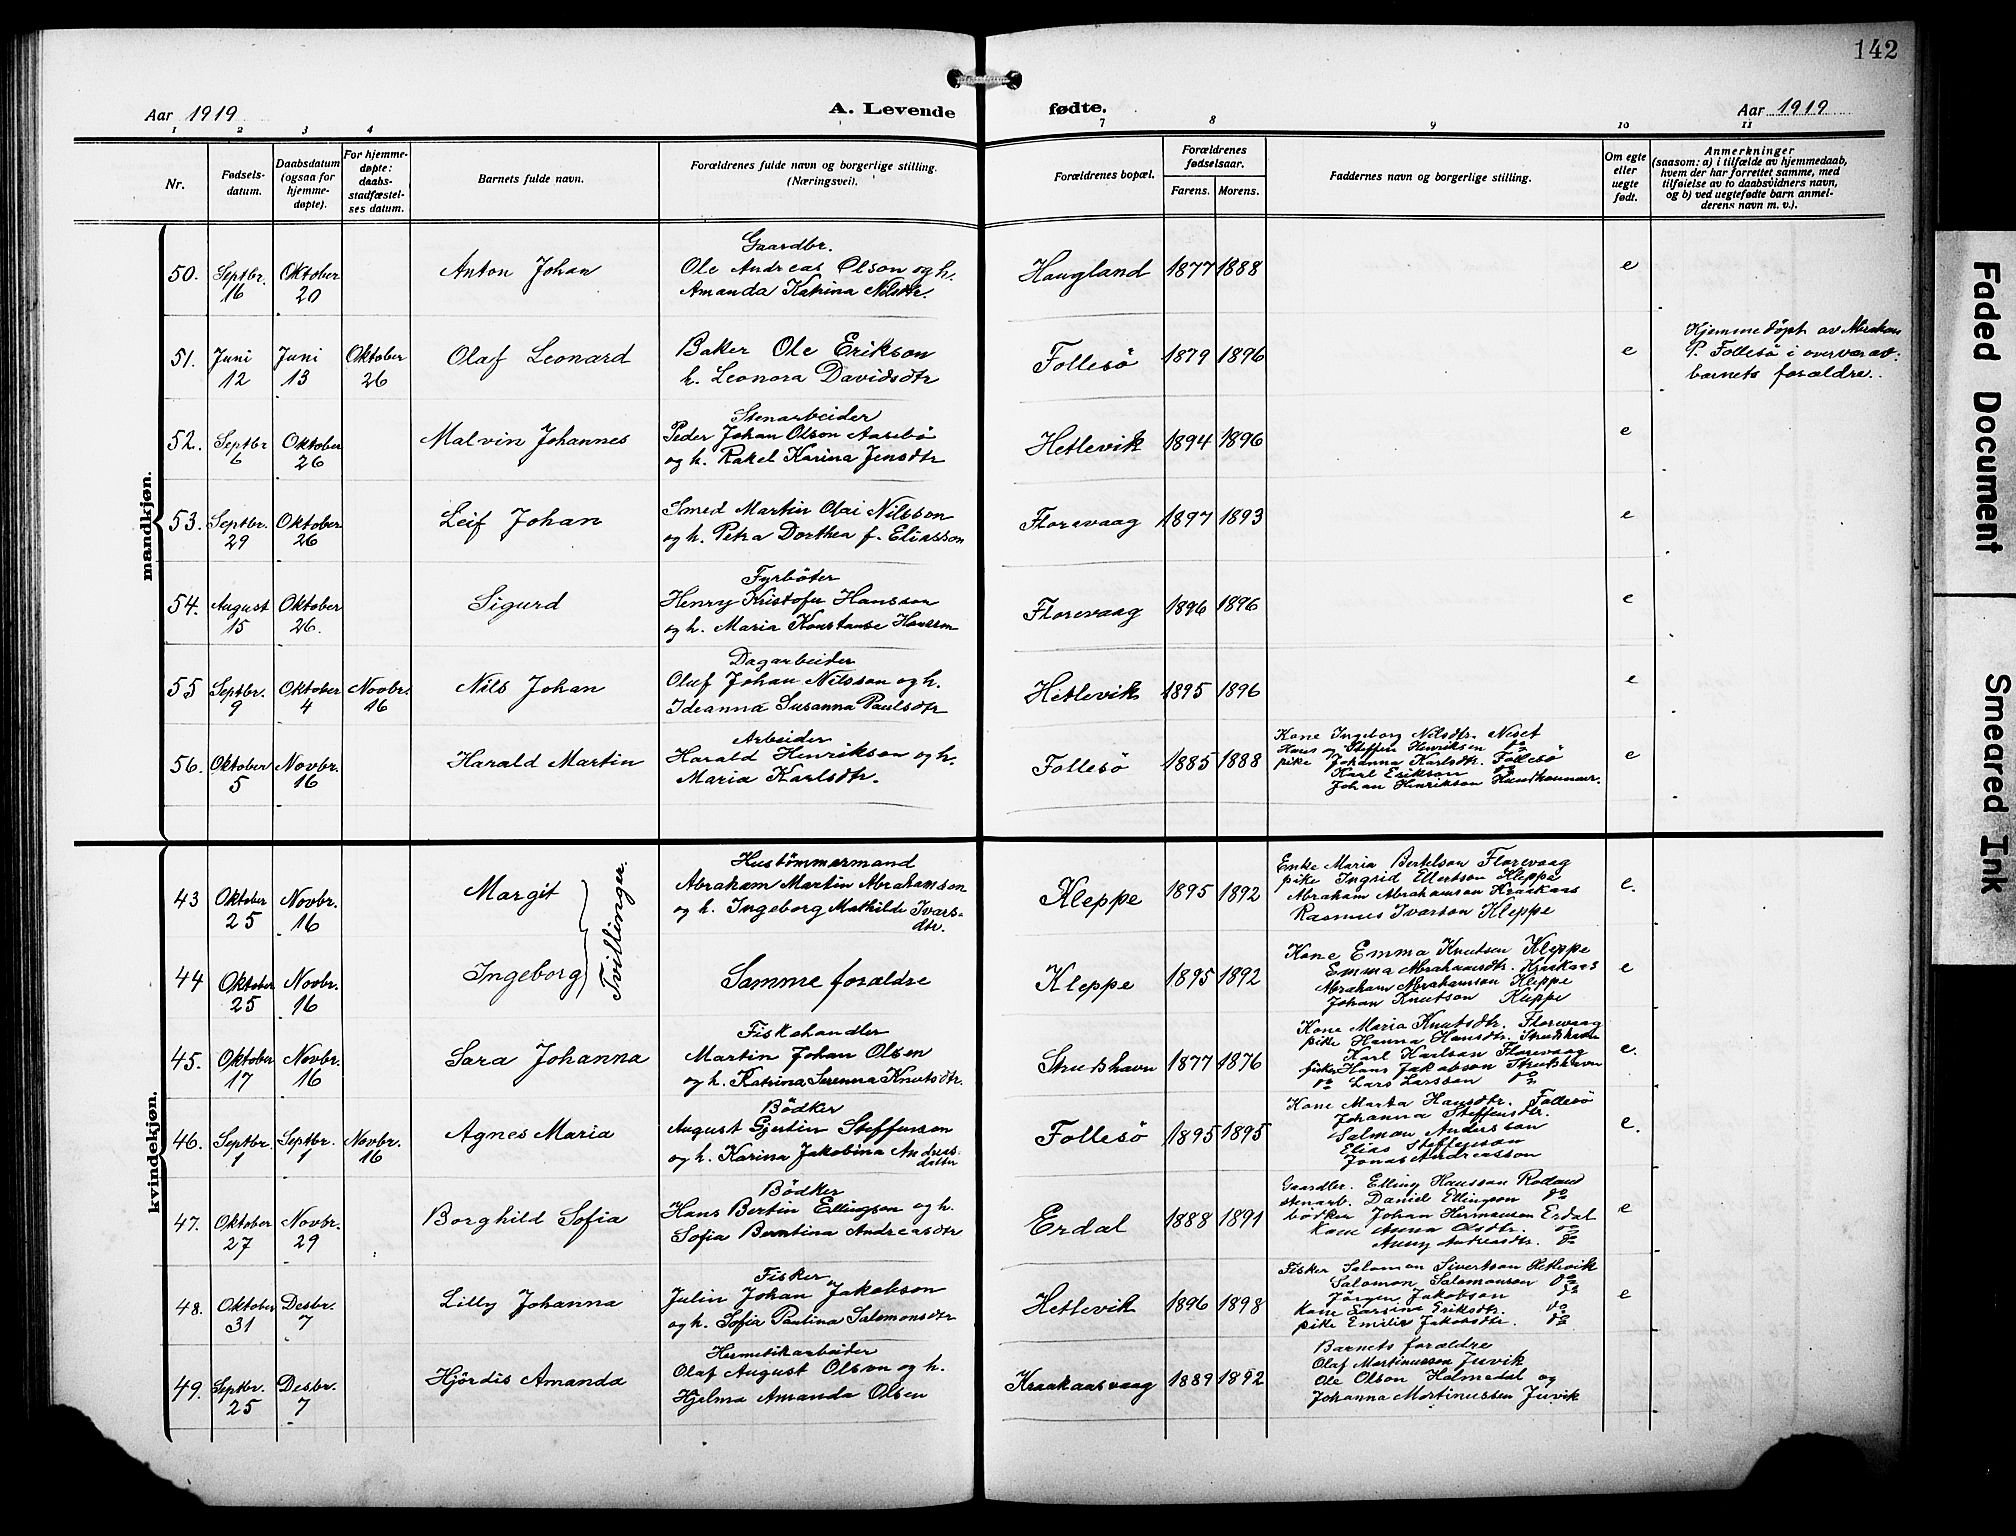 142
Aar 1919
A. Levende fødte.
Aar 1919
1 2 3 4 7 8 9 10 11
Nr.
Fødsels-
datum.
Daabsdatum
(ogsaa for
hjemme-
døpte).
For hjemme-
døpte:
daabs-
stadfæstel-
ses datum.
Barnets fulde navn.
Forældrenes fulde navn og borgerlige stilling.
(Næringsvei).
Forældrenes bopæl.
Forældrenes
fødselsaar.
Farens. Morens.
Faddernes navn og borgerlige stilling.
Om egte
eller
uegte
født.
Anmerkninger
(saasom: a) i tilfælde av hjemmedaab,
hvem der har forrettet samme, med
tilføielse av to daabsvidners navn,
og b) ved uegtefødte barn anmel-
derens navn m. v.).
mandkjøn.
50. Septbr. 16 Oktober 20 Anton Johan
Gaardbr.
Ole Andreas Olson og h.
Amanda Katrina Nilsdtr.
Haugland 1877 1888 e
51. Juni 12 Juni 13 Oktober 26 Olaf Leonard
Baker Ole Erikson
h. Leonora Davidsdtr
Follesö 1879 1896 e
Hjemmedöpt av Abraham
P. Follesö i overvær av
barnets forældre.
52. Septbr 6 Oktober 26 Malvin Johannes
Stenarbeider
Peder Johan Olson Aasebö
og h. Rakel Karina Jensdtr
Hetlevik 1894 1896 e
53. Septbr. 29 Oktober 26 Leif Johan
Smed Martin Olai Nilsson
og h. Petra Dorthea f. Eliasson
Florevaag 1897 1893 e
54. August 15 Oktober 26. Sigurd
Fyrböter
Henry Kristofer Hansson
og h. Maria Konstanse Hansson
Florevaag 1896 1896 e
55 Septbr. 9 Oktober 4 Novbr. 16 Nils Johan
Dagarbeider
Olaf Johan Nilsson og h.
Ideanna Susanna Paulsdtr
Hetlevik 1895 1896 e
56. Oktober 5 Novbr. 16 Harald Martin
Arbeider
Harald Henrikson og h.
Maria Karlsdtr.
Follesö 1885 1888 e
Kone Ingeborg Nilsdtr. Neset
Hans og Steffen Henriksen do
pike Johanna Karlsdtr. Follesö
Karl Erikson do
Johan Henrikson
kvindekjøn.
43 Oktober 25 Novbr. 16 Margit
Tvillinger.
Hustömmermand
Abraham Martin Abrahamson
og h. Ingeborg Mathilde Ivars-
dtr.
Kleppe 1895 1892 e.
Enke Maria Bertelson Florevaag
pike Ingrid Ellertson Kleppe
Abraham Abrahamson Kraakaas
Rasmus Ivarson Kleppe
44 Oktober 25 Novbr. 16 Ingeborg
Samme forældre
Kleppe 1895 1892 e
Kone Emma Knutson Kleppe
Emma Abrahamsdtr. Kraakaas
Abraham Abrahamson Kleppe
Johan Knutson Kleppe
45. Oktober 17 Novbr. 16 Sara Johanna
Fiskehandler
Martin Johan Olsen
og h. Katrina Serenna Knutsdtr.
Strudshavn 1877 1876 e.
Kone Maria Knutsdtr. Florevaag
pike Hanna Hansdtr. Strudshavn
Karl Karlson Florevaag
fisker Hans Jakobson Strudshavn
do Lars Larsson do
46. Septbr. 1 Septbr. 1 Novbr. 16 Agnes Maria
Bödker
August Gjertin Steffenson
og h. Karina Jakobina Andreas-
datter
Follesö 1895 1895 e.
Kone Marta Hansdtr. Follesö
Johanna Steffensdtr.
Salmon Andersson
Elias Steffenson
Jonas Andreasson
47. Oktober 27 Novbr. 29 Borghild Sofia
Bödker
Hans Bertin Ellingson og h.
Sofia Berntina Andreasdtr
Erdal 1888 1891 e
Gaardbr. Elling Hansson
stenarb. Daniel Ellingson do
bödker Johan Hermansen Erdal
Kone Anna Olsdtr. do
Anny Andreasdtr. do
48. Oktober 31 Desbr. 7 Lilly Johanna
Fisker
Julin Johan Jakobson
og h. Sofia Paulina Salomonsdtr
Hetlevik 1896 1898 e
Fisker Salomon Sivertson Hetlevik
Salomon Salomonson do
Jörgen Jakobson do
Kone Larsina Eriksdtr. do
pike Emilie Jakobsdtr. do
49. Septbr. 25 Desbr. 7 Hjördis Amanda
Hermetikarbeider
Olaf August Olson og h.
Hjelma Amanda Olsen
Kraakaasvaag 1889 1892
Barnets forældre
Olaf Martinusson Juvik
Ole Olson Holmedal og
Johanna Martinussen Juvik
Faded Document
Smeared Ink